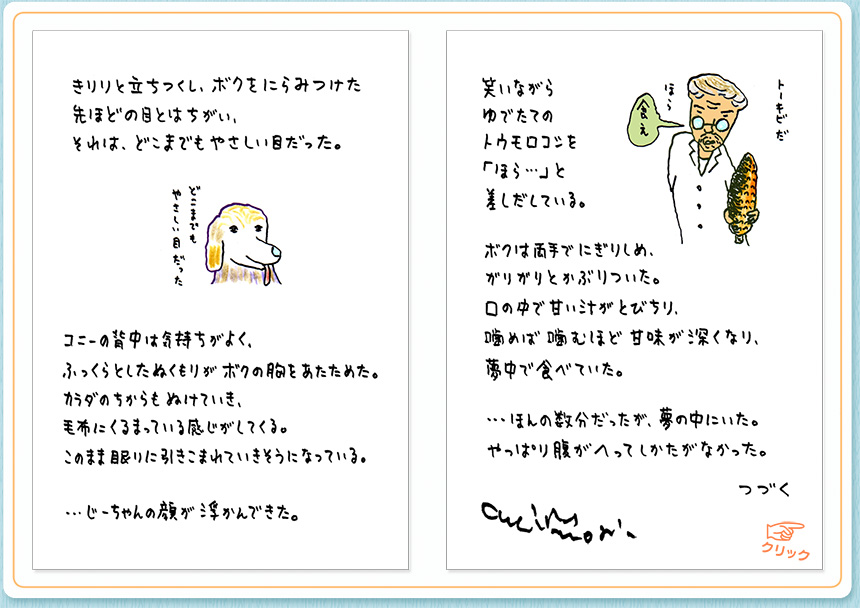 きりりと立ちつくし、ボクをにらみつけた
先ほどの目とはちがい、
それは、どこまでもやさしい目だった。
どこまでも
やさしい目だった
コニーの背中は気持ちがよく、
ふっくらとしたぬくもりがボクの胸をあたためた。
カラダのちからもぬけていき、
毛布にくるまっている感じがしてくる。
このまま眠りに引きこまれていきそうになっている。
…じーちゃんの顔が浮かんできた。
笑いながら
ゆでたての
トウモロコシを
「ほら…」と
差しだしている。
トーキビだ
ほら
食え
ボクは両手でにぎりしめ、
がりがりとかぶりついた。
口の中で甘い汁がとびちり、
噛めば噛むほど甘味が深くなり、
夢中で食べていた。
…ほんの数分だったが、夢の中にいた。
やっぱり腹がへってしかたがなかった。
つづく
クリック